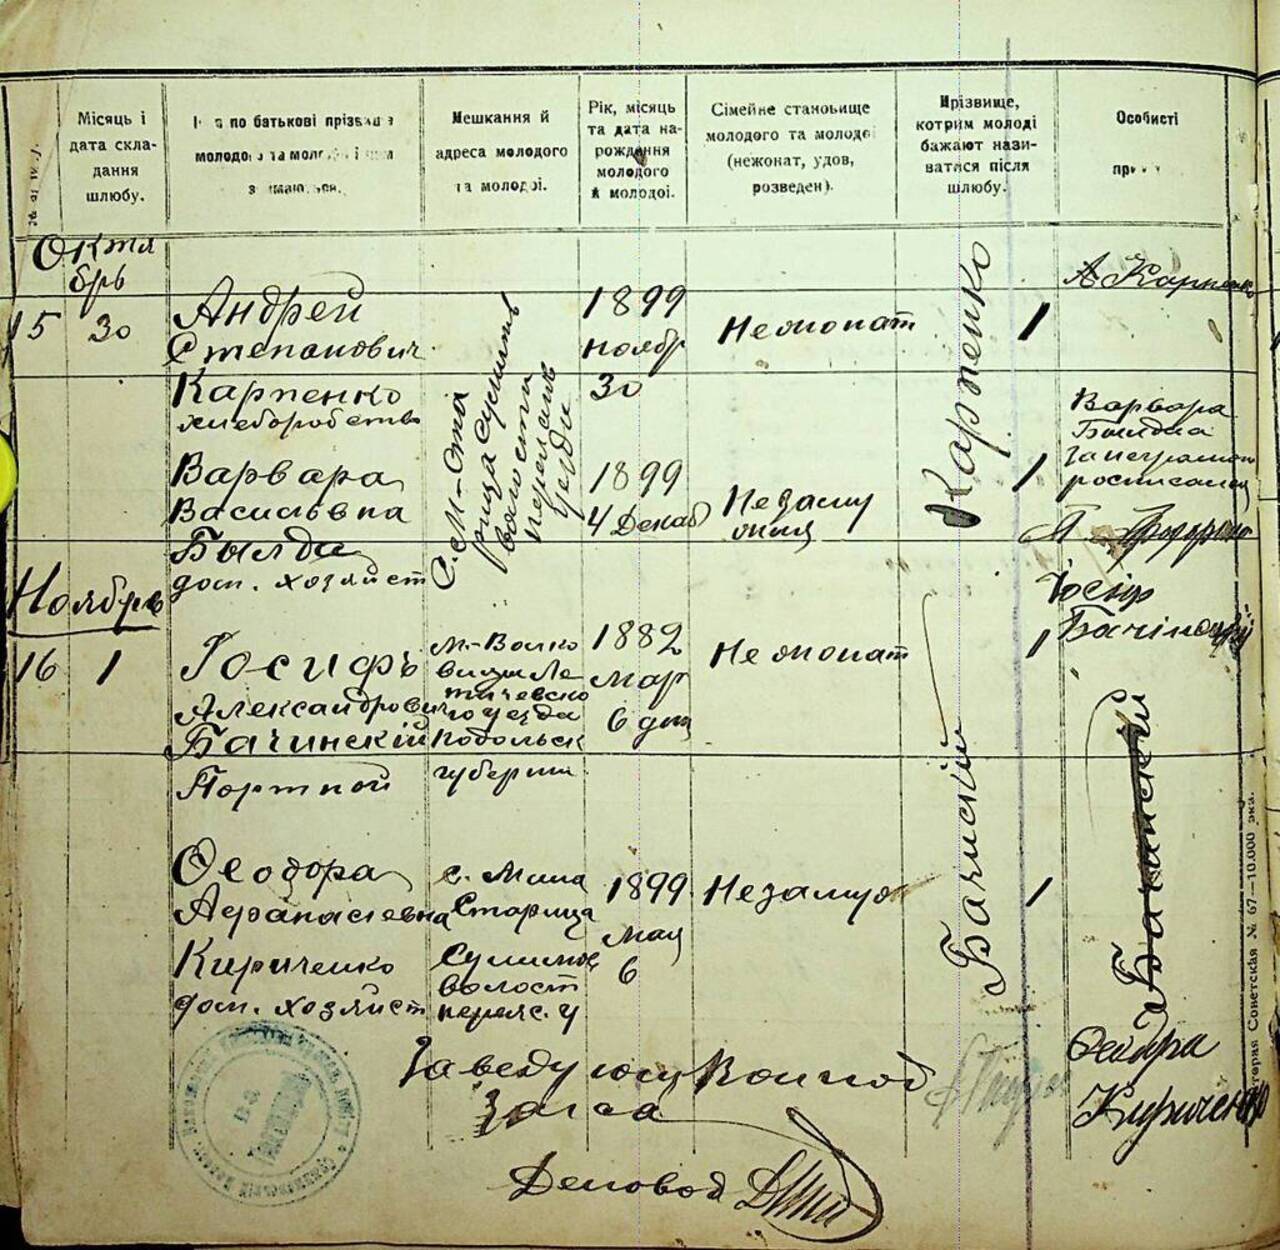 Місяць і
дата скла-
дання
шлюбу.
по батькові
Мешкання й
адреса молодого
та молодої.
Рік, місяць
та дата на-
рождення
молодого
й молодої.
Сімейне становище
молодого та молодої
(нежонат, удов,
розведен).
Прізвище,
котрим молоді
бажают нази-
ватися після
шлюбу.
Особисті
Октя
брь
15
30
Андрей
Степанович
Карпенко
хлеборобство
С. М-Ста
рица Сулимов
волости
Переясл
уезда
1899
ноябр
30
Неженат
Карпенко
1
А Карпенко
Варвара
Василевна
Былда
дом. хозяйст
1899
4 Декаб
Незаму
жняя
1
Варвара
Былдна
за неграмот
росписался
Ноябрь
16
1
Іосифъ
Александрович
Бачинскій
Портной
м.-Волко
винци Ле
тичевско
го уезда
Подольск
губернии
1882
мар
6 дня
Неженат
Бачинскій
1
Іосіф
Бачінский
Феодора
Афанасиевна
Кириченко
дом. хозяйст
с. Мала
Старица
Сулимов
волост
переяс. у
1899
мая
6
Незамуж
1
Бачинский
Феодра
Кириченко
Заведующ
Загса
Деловод
терая Советская № 67—10.000 экз.